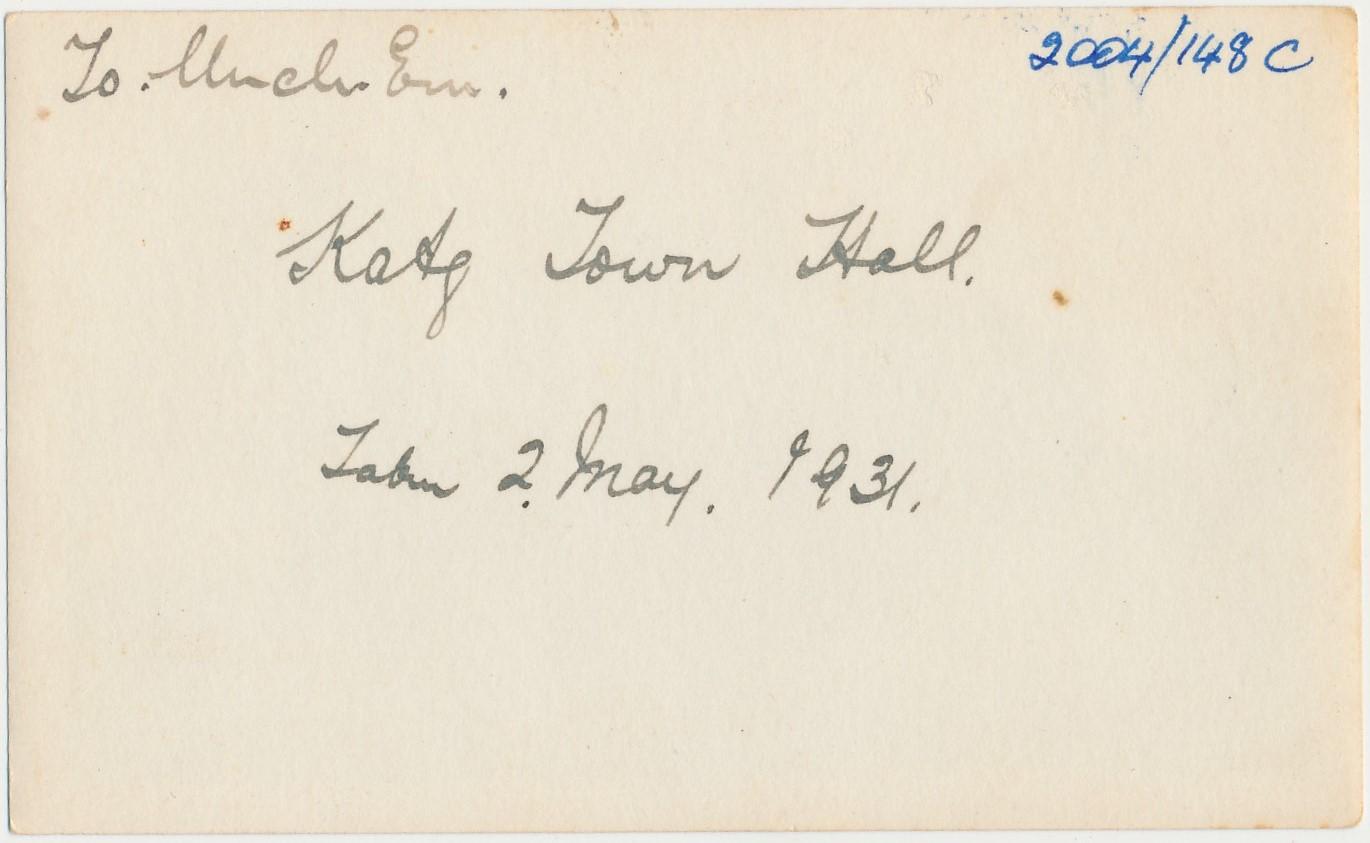 To. Uncle Ern. 2004/148 C
Katg Town Hall.
Taken 2. May. 1931.